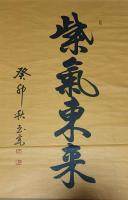 紫氣東来
癸卯秋